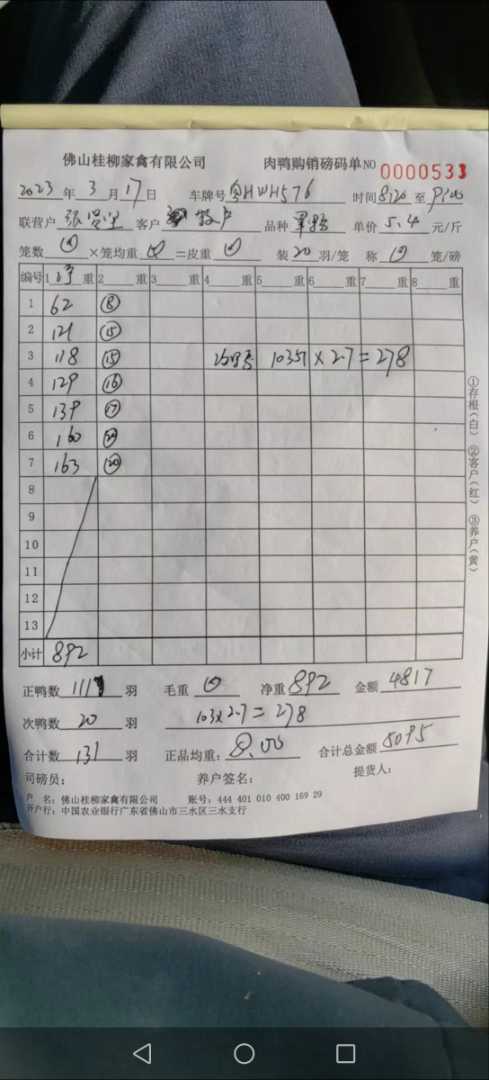 佛山桂柳家禽有限公司 肉鸭购销磅码单NO 0000533
2023 年 3 月 17 日 车牌号 粤HWH576 时间 8:20 至
联营户 张 客户 散户 品种 单价 5.4 元/斤
笼数 × 笼均重 = 皮重 装 20 羽/笼 称 笼/磅
编号 1 净 重 2 重 3 重 4 重 5 重 6 重 7 重 8 重
1 62 ⑧
2 121 ⑮
3 118 ⑮ 103只 × 2.7 = 278
4 129 ⑯
5 139 ⑰
6 160 ⑳
7 163 ⑳
8
9
10
11
12
13
小计 892
正鸭数 111 羽 毛重 净重 892 金额 4817
次鸭数 20 羽 103 x 2.7 = 278
合计数 131 羽 正品均重: 8.00 合计总金额 5095
司磅员: 养户签名: 提货人:
户 名: 佛山桂柳家禽有限公司 账号: 444 401 010 400 169 29
开户行: 中国农业银行广东省佛山市三水区三水支行
①存根(白) ②客户(红) ③养户(黄)